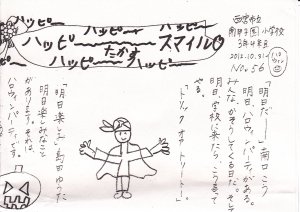 ハッピー
ハッピー
ハッピー
ハッピー
たかす
スマイル
ハッピー
ハッピー
西宮市立
南甲子園小学校
3年4組
2012.10.31
No.56
「明日だー」南口こう
明日、ハロウィンパーティがある。
みんな、かそうしてくる日だ。そして
明日、学校に来たら、こう言って
やる。
「トリック オア トリート！」
「明日楽しみ」島田ゆうた
明日楽しみなこと
があります。それは、
ハロウィンパーティです。